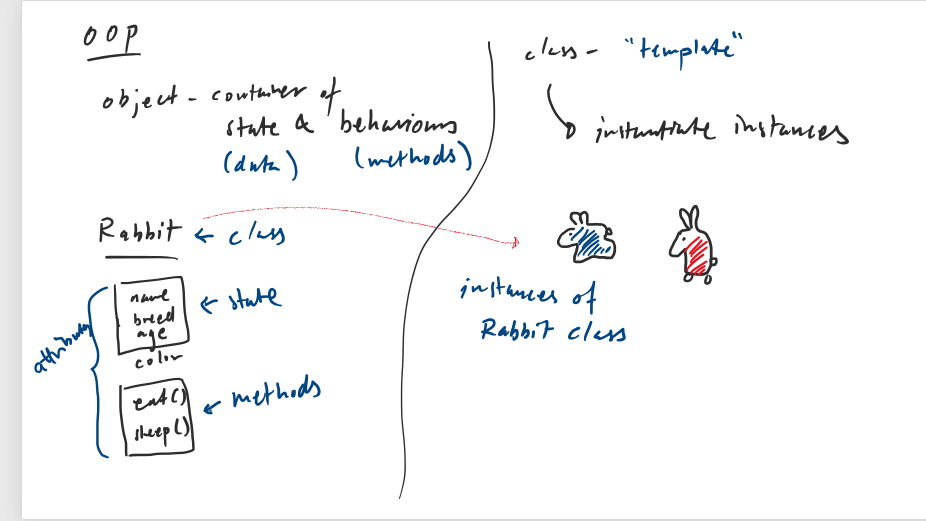 OOP
object - container of
state & behaviours
(data) (methods)
Rabbit ← class
name
breed
age
color
← state
attributes
eat()
sleep()
← methods
class - "template"
instantiate instances
instances of
Rabbit class